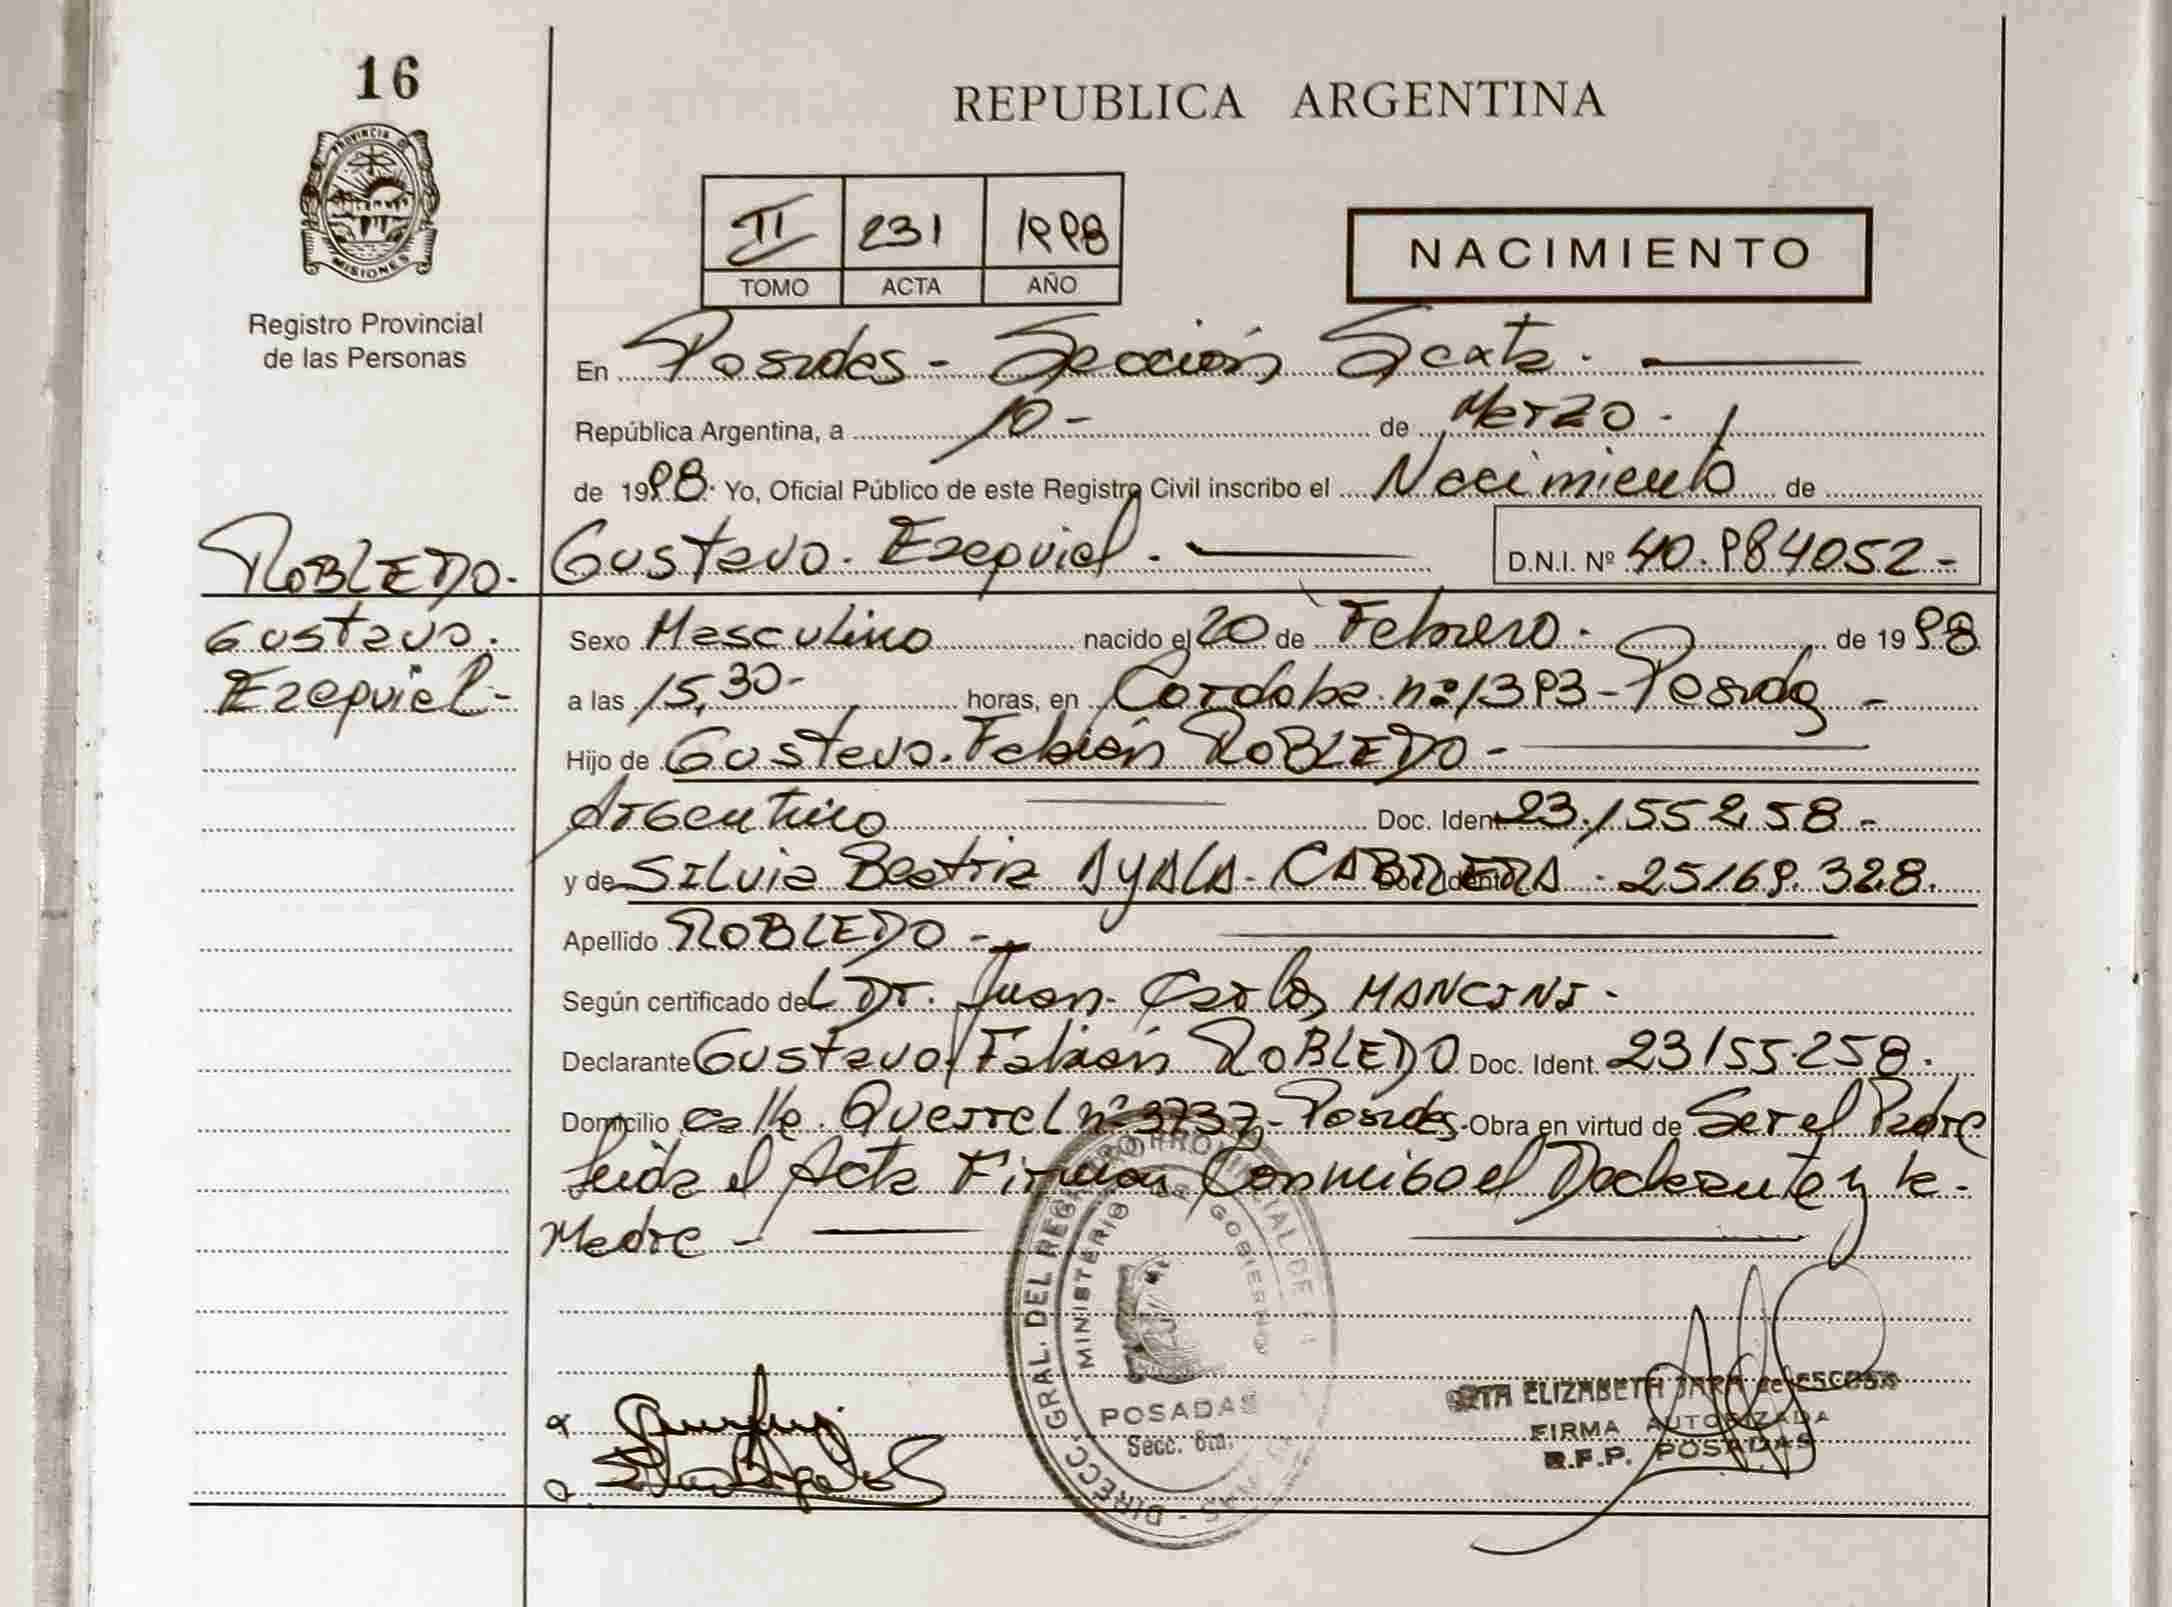 16
PROVINCIA DE
MISIONES
Registro Provincial
de las Personas
REPUBLICA ARGENTINA
II 231 1998
TOMO ACTA AÑO
NACIMIENTO
En Posadas - Sección Sexta. -
República Argentina, a 10- de Marzo -
de 1998. Yo, Oficial Público de este Registro Civil inscribo el Nacimiento de
ROBLEDO. Gustavo. Ezequiel. - D.N.I. Nº 40.984052-
Gustavo. Sexo Masculino nacido el 20 de Febrero. de 1998
Ezequiel- a las 15,30- horas, en Cordoba. nº 1393- Posadas -
Hijo de Gustavo. Fabián ROBLEDO -
Argentino Doc. Ident. 23.155258 -
y de Silvia Beatriz AYALA. CABRERA. 25169.328.
Apellido ROBLEDO -
Según certificado del Dr. Juan. Carlos MANCINI -
Declarante Gustavo Fabián ROBLEDO Doc. Ident. 23155.258.
Domicilio calle. nº 3737- Posadas. Obra en virtud de Ser el Padre
Leida el Acta Firman Conmigo el Declarante y la -
Madre -
DIRECC. GRAL. DEL REGISTRO PROVINCIAL DE
MINISTERIO DE GOBIERNO
POSADAS
Secc. 6ta.
ELIZABETH JARA de
FIRMA AUTORIZADA
R.P.P. POSADAS